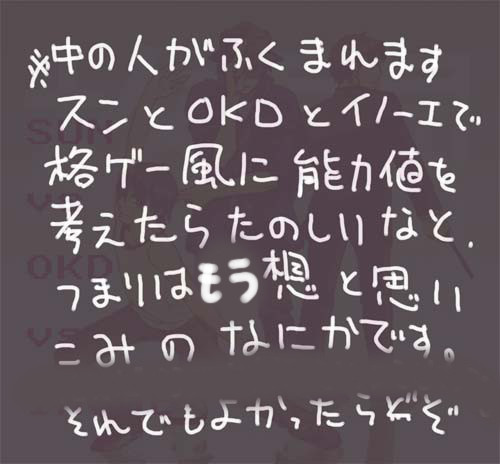 ※中の人がふくまれます
スンとOKDとイノーエで
格ゲー風に能力値を
考えたらたのしいなと、
つまりはもう想と思い
こみのなにかです。
それでもよかったらどぞ
SUN
VS
OKD
VS